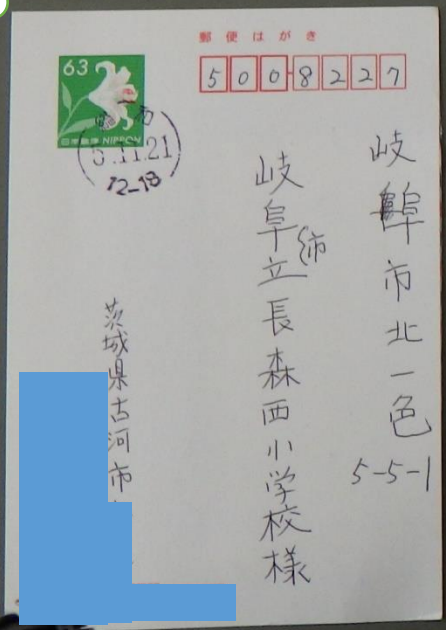 郵便はがき
5008227
63
日本郵便 NIPPON
5.11.21
12-18
岐阜市北一色
5-5-1
岐阜市立長森西小学校様
茨城県古河市